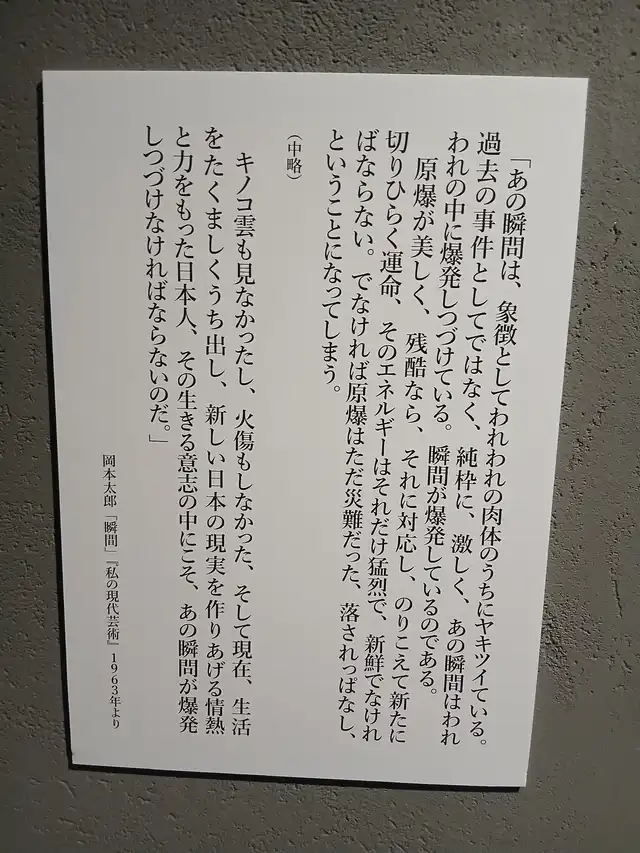 「あの瞬間は、象徴としてわれわれの肉体のうちにヤキツイている。
過去の事件としてではなく、純枠に、激しく、あの瞬間はわれ
われの中に爆発しつづけている。瞬間が爆発しているのである。
原爆が美しく、残酷なら、それに対応し、のりこえて新たに
切りひらく運命、そのエネルギーはそれだけ猛烈で、新鮮でなけれ
ばならない。でなければ原爆はただ災難だった、落されっぱなし、
ということになってしまう。
(中略)
キノコ雲も見なかったし、火傷もしなかった、そして現在、生活
をたくましくうち出し、新しい日本の現実を作りあげる情熱
と力をもった日本人、その生きる意志の中にこそ、あの瞬間が爆発
しつづけなければならないのだ。」
岡本太郎「瞬間」『私の現代芸術』1963年より